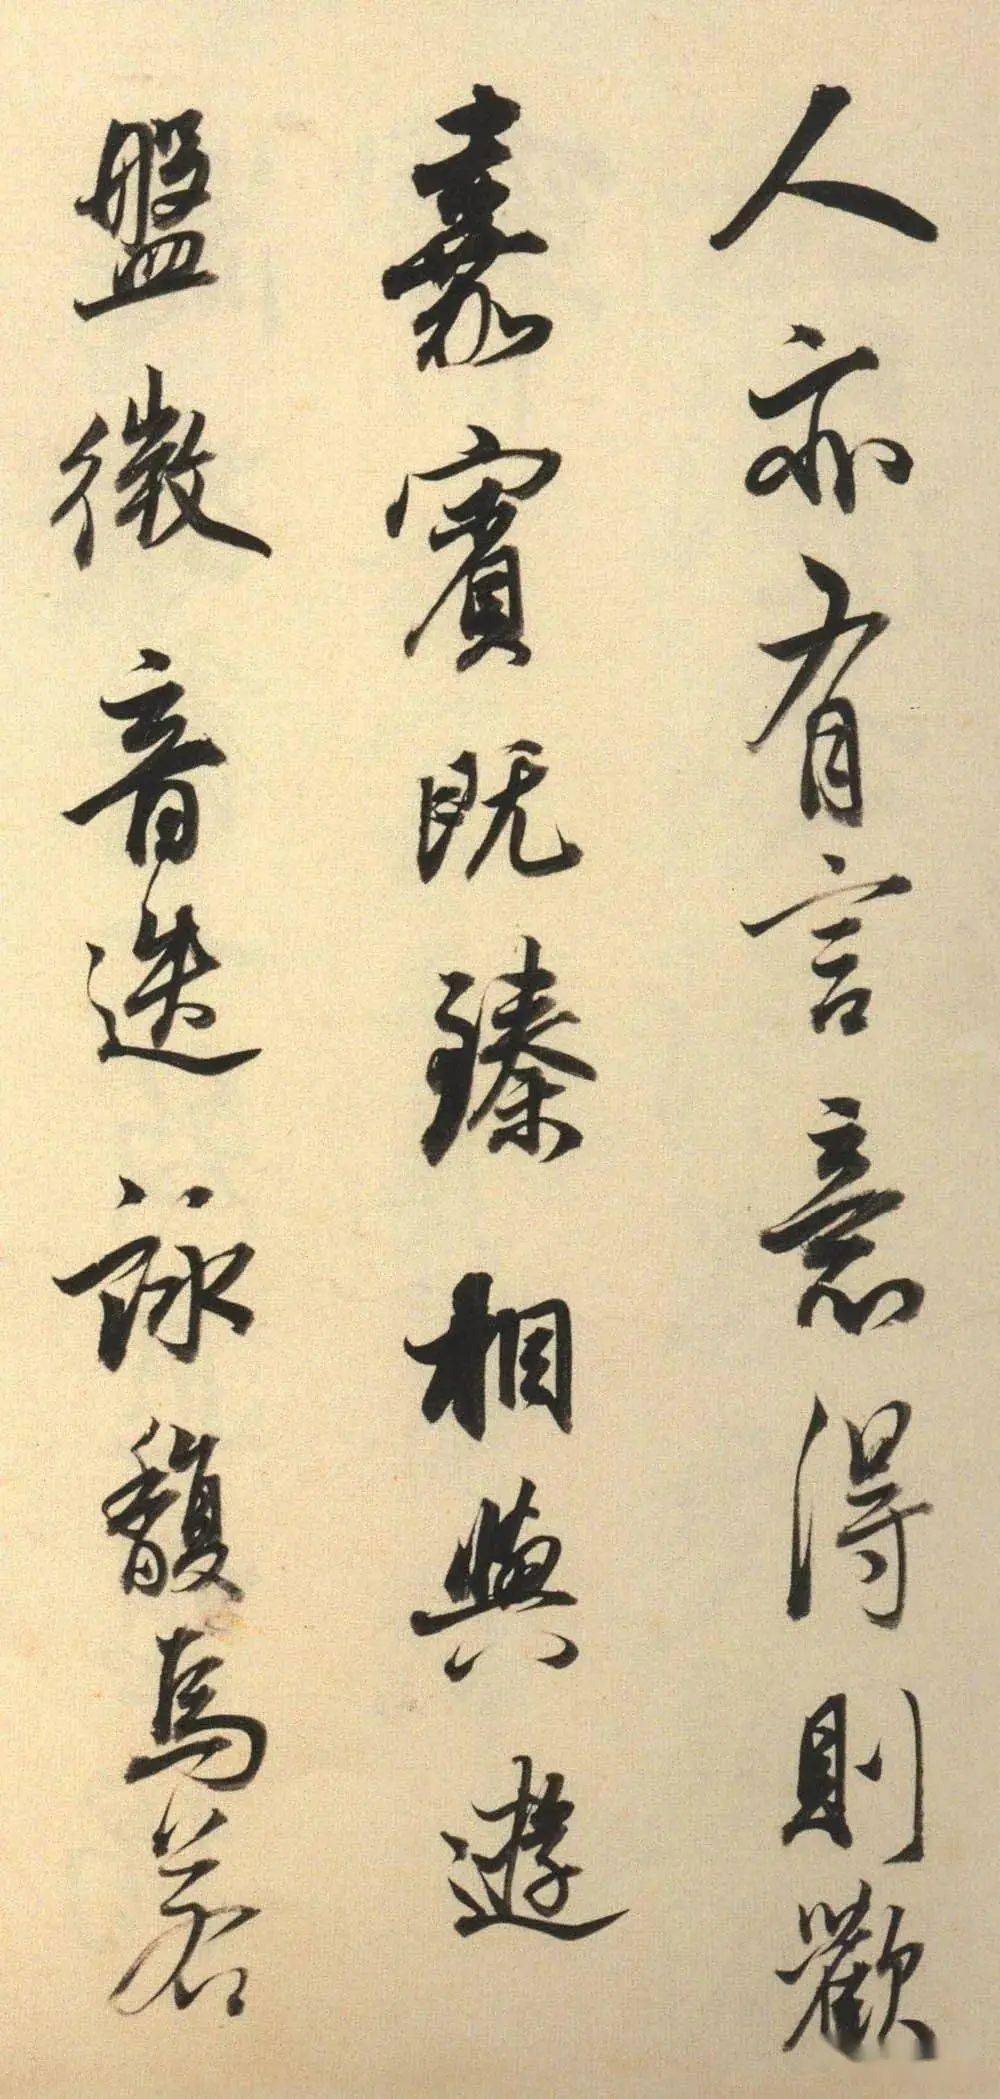 人亦有言意得則歡
嘉賓既臻相與遊
盤微音迭詠馥焉若